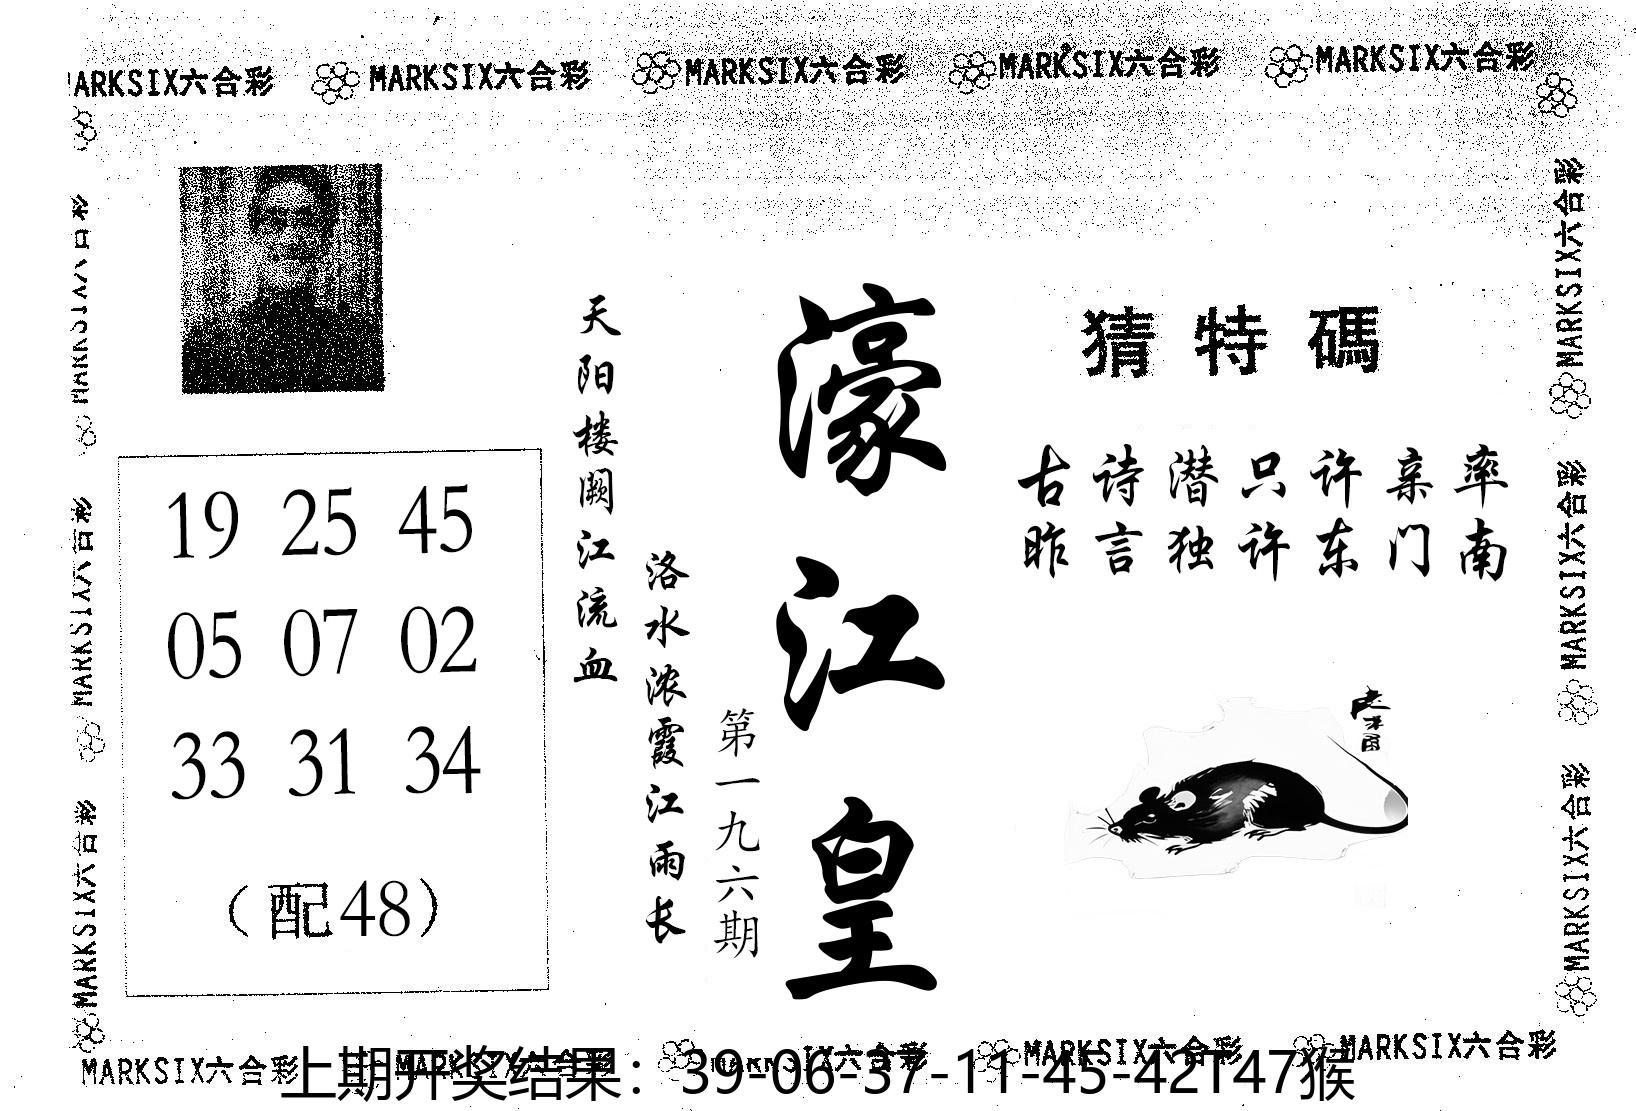 MARKSIX六合彩 MARKSIX六合彩 MARKSIX六合彩 MARKSIX六合彩 MARKSIX六合彩
MARKSIX六合彩
MARKSIX六合彩
MARKSIX六合彩
猜特碼
古诗潜只许亲率
昨言独许东门南
濠江皇
第一九六期
洛水浓霞江雨长
天阳楼阙江流血
19 25 45
05 07 02
33 31 34
（配48）
MARKSIX六合彩
MARKSIX六合彩
MARKSIX六合彩
MARKSIX六合彩 MARKSIX六合彩 MARKSIX六合彩 MARKSIX六合彩 MARKSIX六合彩
上期开奖结果：39-06-37-11-45-42T47猴